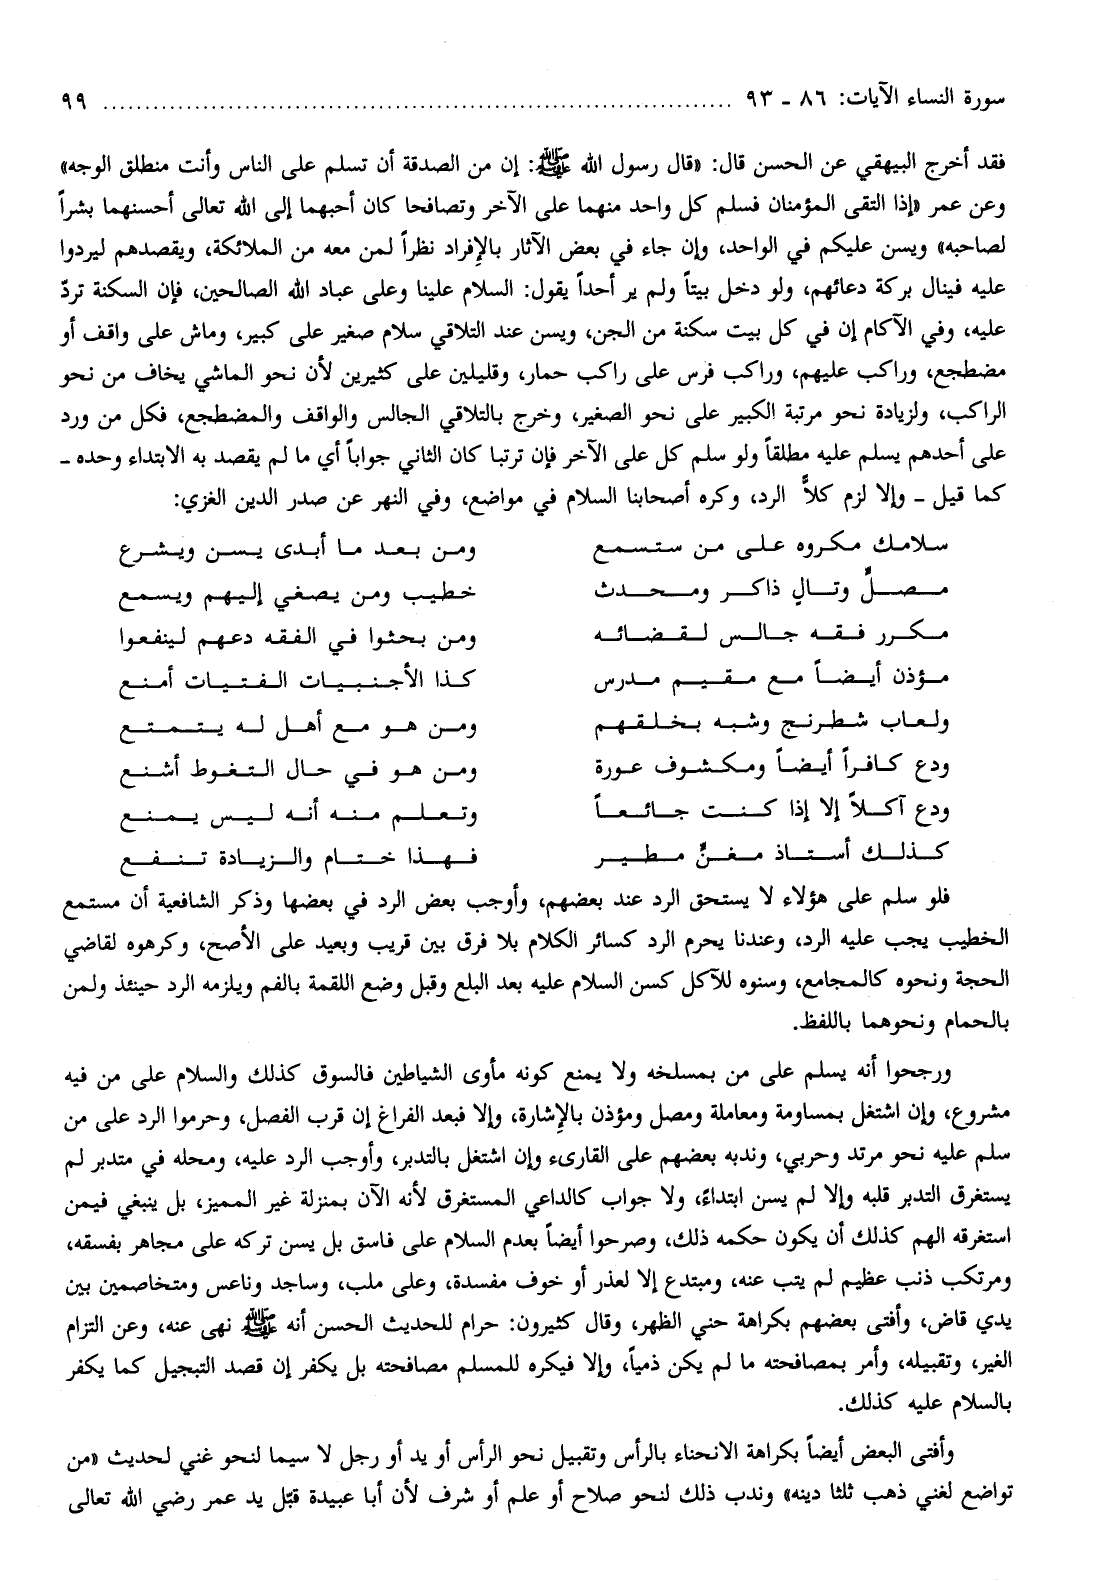 سورة النساء الآيات: ٨٦ ـ ٩٣ ........................................................................... ٩٩
فقد أخرج البيهقي عن الحسن قال: «قال رسول الله ﷺ: إن من الصدقة أن تسلم على الناس وأنت منطلق الوجه»
وعن عمر «إذا التقى المؤمنان فسلم كل واحد منهما على الآخر وتصافحا كان أحبهما إلى الله تعالى أحسنهما بشراً
لصاحبه» ويسن عليكم في الواحد، وإن جاء في بعض الآثار بالإفراد نظراً لمن معه من الملائكة، ويقصدهم ليردوا
عليه فينال بركة دعائهم، ولو دخل بيتاً ولم ير أحداً يقول: السلام علينا وعلى عباد الله الصالحين، فإن السكنة تردّ
عليه، وفي الآكام إن في كل بيت سكنة من الجن، ويسن عند التلاقي سلام صغير على كبير، وماش على واقف أو
مضطجع، وراكب عليهم، وراكب فرس على راكب حمار، وقليلين على كثيرين لأن نحو الماشي يخاف من نحو
الراكب، ولزيادة نحو مرتبة الكبير على نحو الصغير، وخرج بالتلاقي الجالس والواقف والمضطجع، فكل من ورد
على أحدهم يسلم عليه مطلقاً ولو سلم كل على الآخر فإن ترتبا كان الثاني جواباً أي ما لم يقصد به الابتداء وحده ـ
كما قيل ـ وإلا لزم كلاًّ الرد، وكره أصحابنا السلام في مواضع، وفي النهر عن صدر الدين الغزي:
سلامك مكروه على من ستسمع ومن بعد ما أبدى يسن ويشرع
مصلٍّ وتالٍ ذاكر ومحدث خطيب ومن يصغي إليهم ويسمع
مكرر فقه جالس لقضائه ومن بحثوا في الفقه دعهم لينفعوا
مؤذن أيضاً مع مقيم مدرس كذا الأجنبيات الفتيات أمنع
ولعاب شطرنج وشبه بخلقهم ومن هو مع أهل له يتمتع
ودع كافراً أيضاً ومكشوف عورة ومن هو في حال التغوط أشنع
ودع آكلاً إلا إذا كنت جائعاً وتعلم منه أنه ليس يمنع
كذلك أستاذ مغنٍّ مطير فهذا ختام والزيادة تنفع
فلو سلم على هؤلاء لا يستحق الرد عند بعضهم، وأوجب بعض الرد في بعضها وذكر الشافعية أن مستمع
الخطيب يجب عليه الرد، وعندنا يحرم الرد كسائر الكلام بلا فرق بين قريب وبعيد على الأصح، وكرهوه لقاضي
الحجة ونحوه كالمجامع، وسنوه للآكل كسن السلام عليه بعد البلع وقبل وضع اللقمة بالفم ويلزمه الرد حينئذ ولمن
بالحمام ونحوهما باللفظ.
ورجحوا أنه يسلم على من بمسلخه ولا يمنع كونه مأوى الشياطين فالسوق كذلك والسلام على من فيه
مشروع، وإن اشتغل بمساومة ومعاملة ومصل ومؤذن بالإشارة، وإلا فبعد الفراغ إن قرب الفصل، وحرموا الرد على من
سلم عليه نحو مرتد وحربي، وندبه بعضهم على القارىء وإن اشتغل بالتدبر، وأوجب الرد عليه، ومحله في متدبر لم
يستغرق التدبر قلبه وإلا لم يسن ابتداءً، ولا جواب كالداعي المستغرق لأنه الآن بمنزلة غير المميز، بل ينبغي فيمن
استغرقه الهم كذلك أن يكون حكمه ذلك، وصرحوا أيضاً بعدم السلام على فاسق بل يسن تركه على مجاهر بفسقه،
ومرتكب ذنب عظيم لم يتب عنه، ومبتدع إلا لعذر أو خوف مفسدة، وعلى ملب، وساجد وناعس ومتخاصمين بين
يدي قاض، وأفتى بعضهم بكراهة حني الظهر، وقال كثيرون: حرام للحديث الحسن أنه ﷺ نهى عنه، وعن التزام
الغير، وتقبيله، وأمر بمصافحته ما لم يكن ذمياً، وإلا فيكره للمسلم مصافحته بل يكفر إن قصد التبجيل كما يكفر
بالسلام عليه كذلك.
وأفتى البعض أيضاً بكراهة الانحناء بالرأس وتقبيل نحو الرأس أو يد أو رجل لا سيما لنحو غني لحديث «من
تواضع لغني ذهب ثلثا دينه» وندب ذلك لنحو صلاح أو علم أو شرف لأن أبا عبيدة قبّل يد عمر رضي الله تعالى